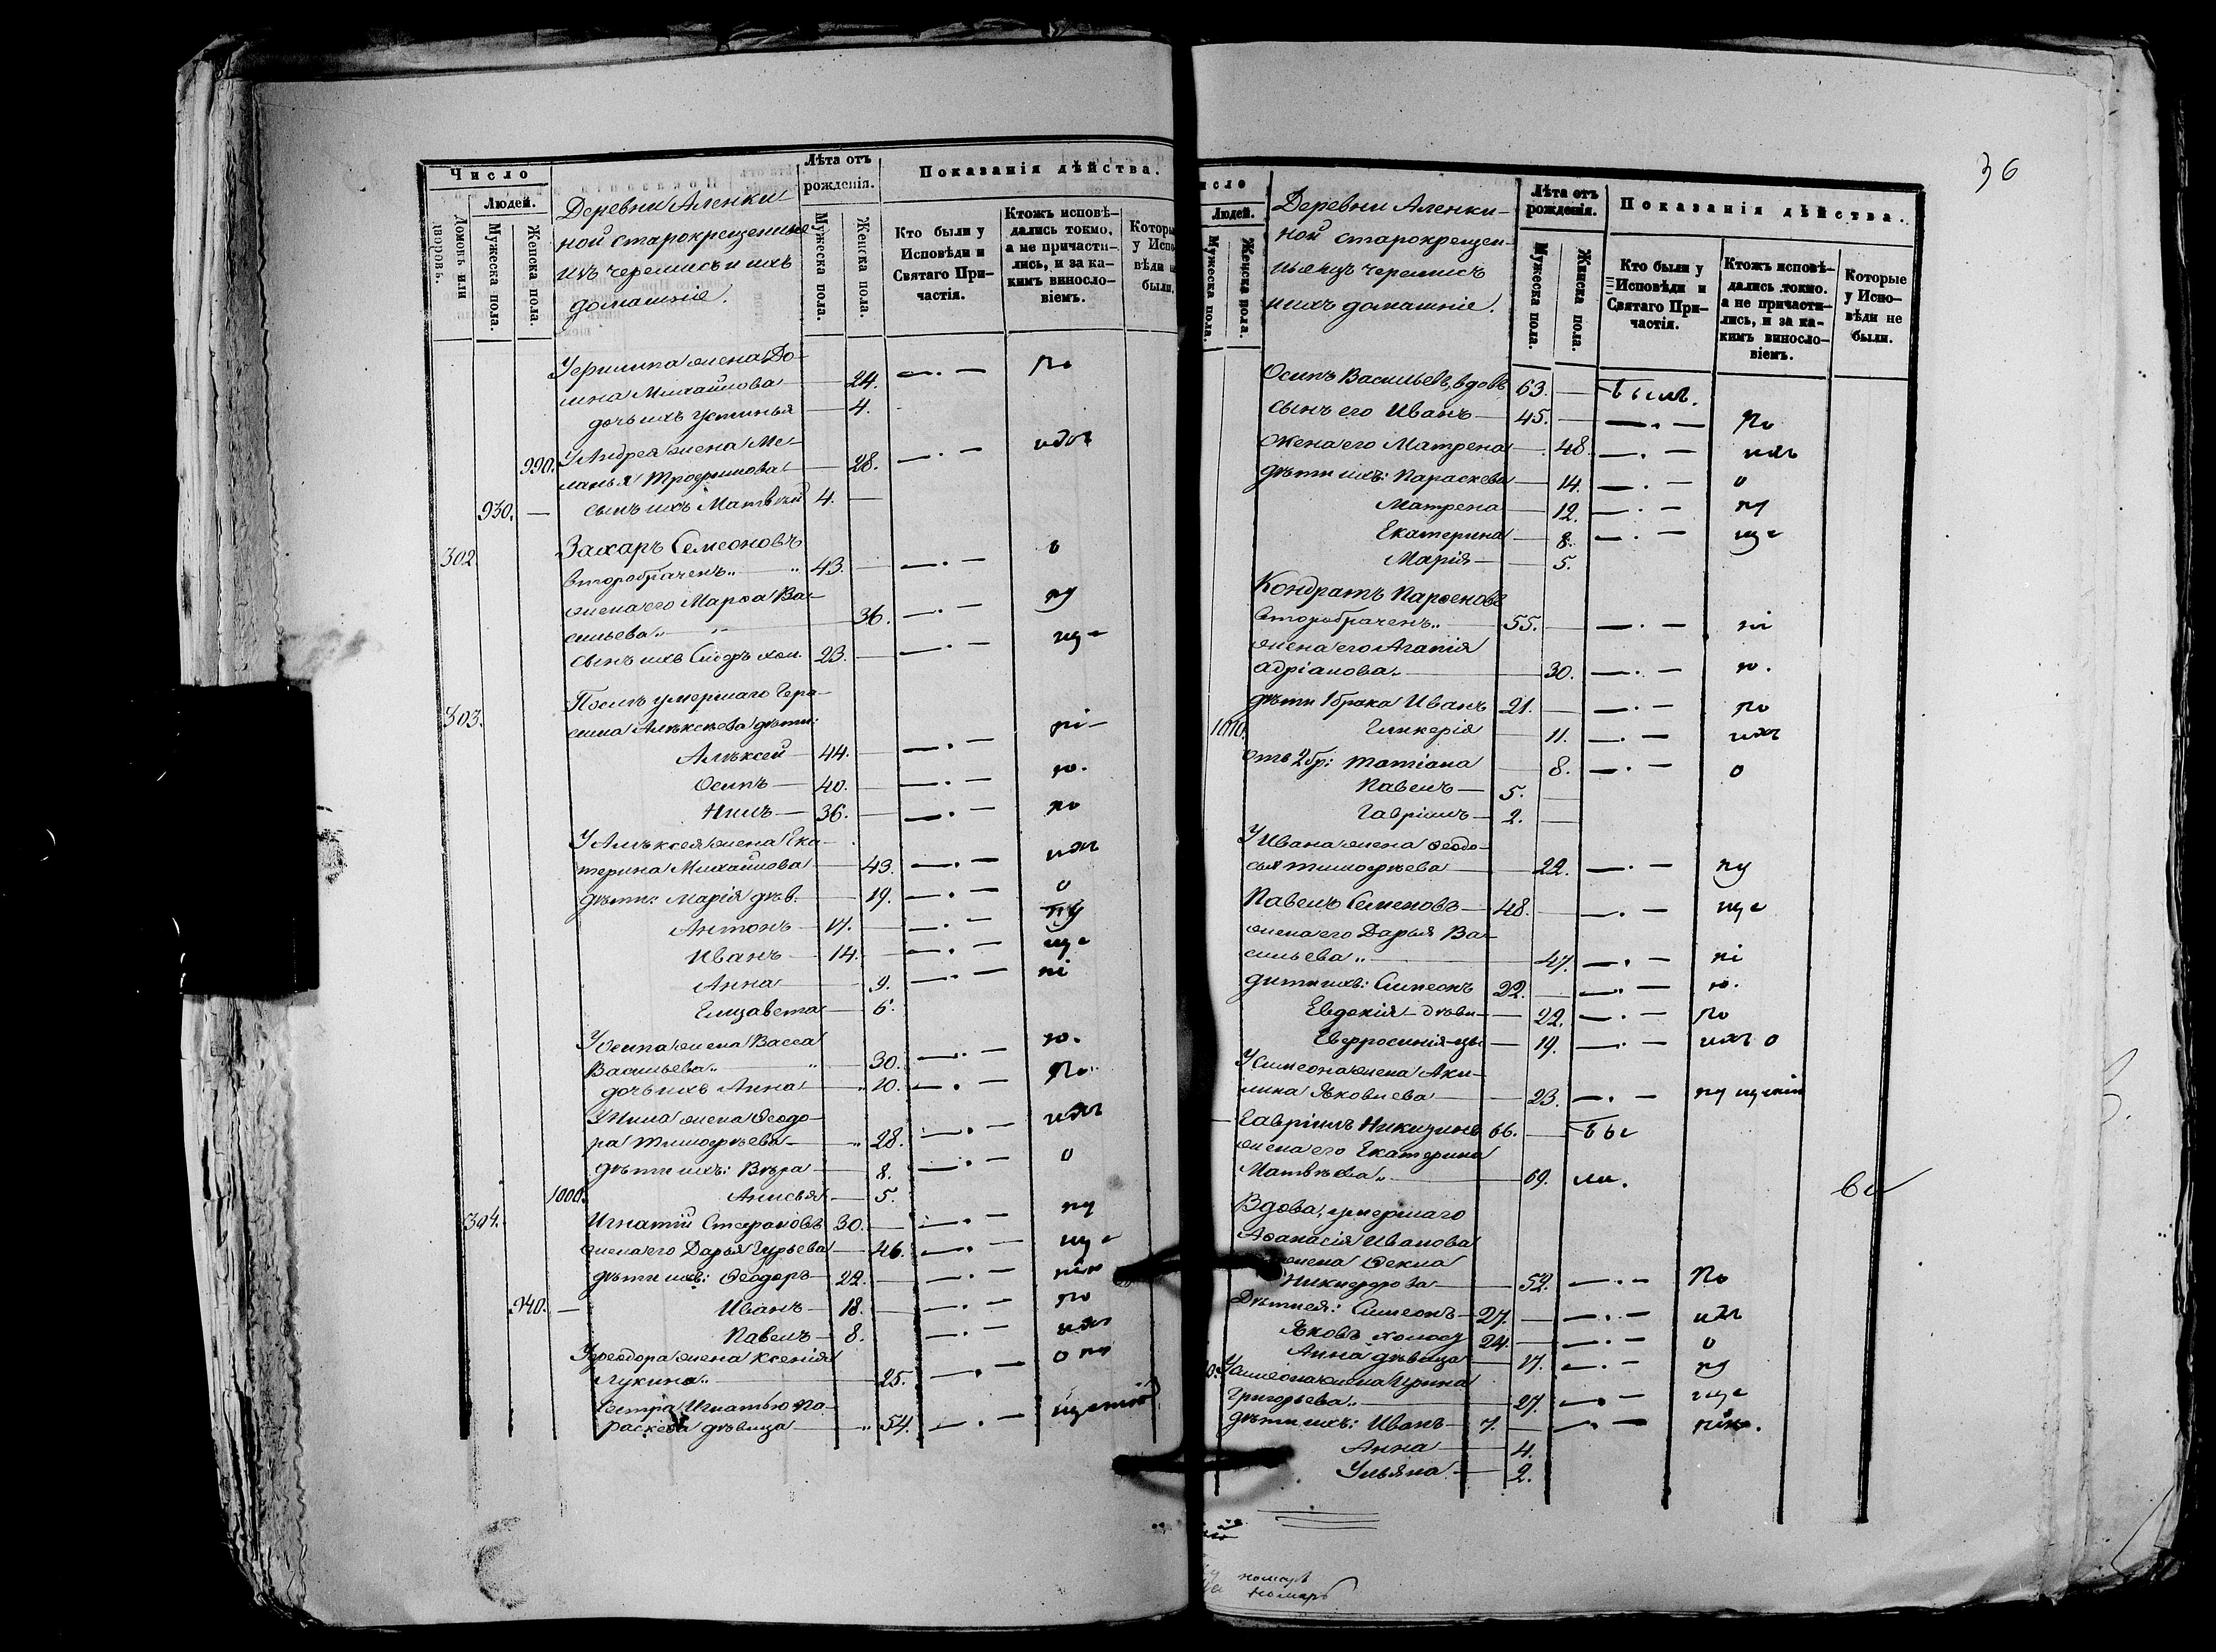 Число
Людей.
Домовъ или дворовъ.
Мужеска пола.
Женска пола.
Деревни Аленки-
ной старокрещенные
изъ черемисъ и ихъ
домашніе.
Лѣта отъ
рожденія.
Мужеска пола.
Женска пола.
Показанія дѣйства.
Кто были у
Исповѣди и
Святаго При-
частія.
Ктожъ исповѣ-
дались токмо,
а не причасти-
лись, и за ка-
кимъ виносло-
віемъ.
Которы
у Испо
вѣди н
были.
жена До-
мна Михайлова — 24. — . — по
дочь ихъ Устинья — 4.
990. У Андрея жена Ме-
ланья Трофимова — 28. — . —
930. — сынъ ихъ Матвѣй 4. —
302 Захаръ Семеоновъ
второбраченъ „ „ 43. — — . — о
жена его Марѳа Ва-
сильева „ 36. — . — пу
сынъ ихъ хол. 23. — — . — ще
303. Послѣ умершаго Гера-
сима Алексѣева дѣти:
Алѣксей — 44. — — . — ні
Осипъ — 40. — — . — ю.
Нилъ — 36. — — . — по
У Алѣксея жена Ека-
терина Михайлова — 43. — . —
дѣти: Марія дѣв. — 19. — . — о
Антонъ — 17. — — . — пу
Иванъ — 14. — — . — ще
Анна — 9. — . — ні
Елизавета — 6.
У Осипа жена Васса
Васильева „ „ 30. — . — ю.
дочь ихъ Анна „ 10. — . — по
У Нила жена Ѳеодо-
ра Тимофѣева — „ 28. — . —
дѣти ихъ: Вѣра — 8. — . — о
1000. Анисья — 5.
304. Игнатій Стефановъ 30. — — . — пу
жена его Дарья Гурьева — 46. — . — ще
дѣти ихъ: Ѳеодоръ — 22. — — . — нію
940. — Иванъ — 18. — — . — по
Павелъ — 8. — . —
У Ѳеодора жена Ксенія
Лукина „ — 25. — . — о
Сестра Игнатью Па-
раскева дѣвица — „ 54. — . —
36
исло
Людей.
Мужеска пола.
Женска пола.
Деревни Аленки-
ной старокрещен-
ныя изъ черемисъ
и ихъ домашніе.
Лѣта отъ
рожденія.
Мужеска пола.
Жинска пола.
Показанія дѣйства.
Кто были у
Исповѣди и
Святаго При-
частія.
Ктожъ исповѣ-
дались токмо.
а не причасти-
лись, и за ка-
кимъ виносло-
віемъ.
Которые
у Испо-
вѣди не
были.
Осипъ Васильевъ, вдовъ 63. — были.
сынъ его Иванъ — 45. — — . — по
жена его Матрена — 48 — . —
дѣти ихъ: Параскева — 14. — . — о
Матрена — 12. — . — пу
Екатерина — 8. — . — ще
Марія — 5.
Кондратъ Парѳеновъ
второбраченъ „ 55. — — . — ні
жена его Агапія
Адріанова „ — 30. — . — ю.
дѣти 1 брака Иванъ 21. — — . — по
1010. Гликерія — 11. — . —
отъ 2 бр: Татіана — 8. — . — о
Павелъ — 5. —
Гавріилъ — 2. —
У Ивана жена Ѳеодо-
сья Тимофѣева — 22. — . — пу
Павелъ Семеновъ — 48. — — . — ще
жена его Дарья Ва-
сильева „ — 47. — . — ні
дѣти ихъ: Симеонъ 22. — — . — ю.
Евдокія — дѣви- — 22. — . — по
Евфросинія — цы — 19. — . — о
У Симеона жена Аки-
лина Яковлева — 23. — . —
Гавріилъ Никизинъ 66. — бы
жена его Екатерина
Матвѣева „ — 69. ли.
Вдова, умершаго
Аѳанасія Иванова
жена Ѳекла
52. — . — по
Дѣти ея: Симеонъ — 27. — — . —
Яковъ холост 24. — — . — о
Анна дѣвица — 17. — . — пу
У Симеона жена Ирина
Григорьева „ — 27. — . — ще
дѣти ихъ: Иванъ — 7. — — . — нію.
Анна — 4.
Ульяна — 2.